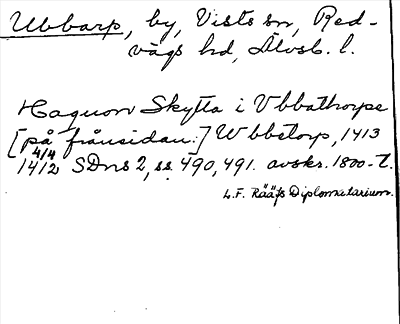 Ubbarp, by, Vists sn, Red-
vägs hd, Älvsb. l.
Haquon Skytta i Vbbathorpe
[på frånsidan:] Wbbetorp, 1413
4/4
1412 SDns 2, ss. 490, 491. avskr. 1800-t.
L.F. Rääfs Diplomatarium.